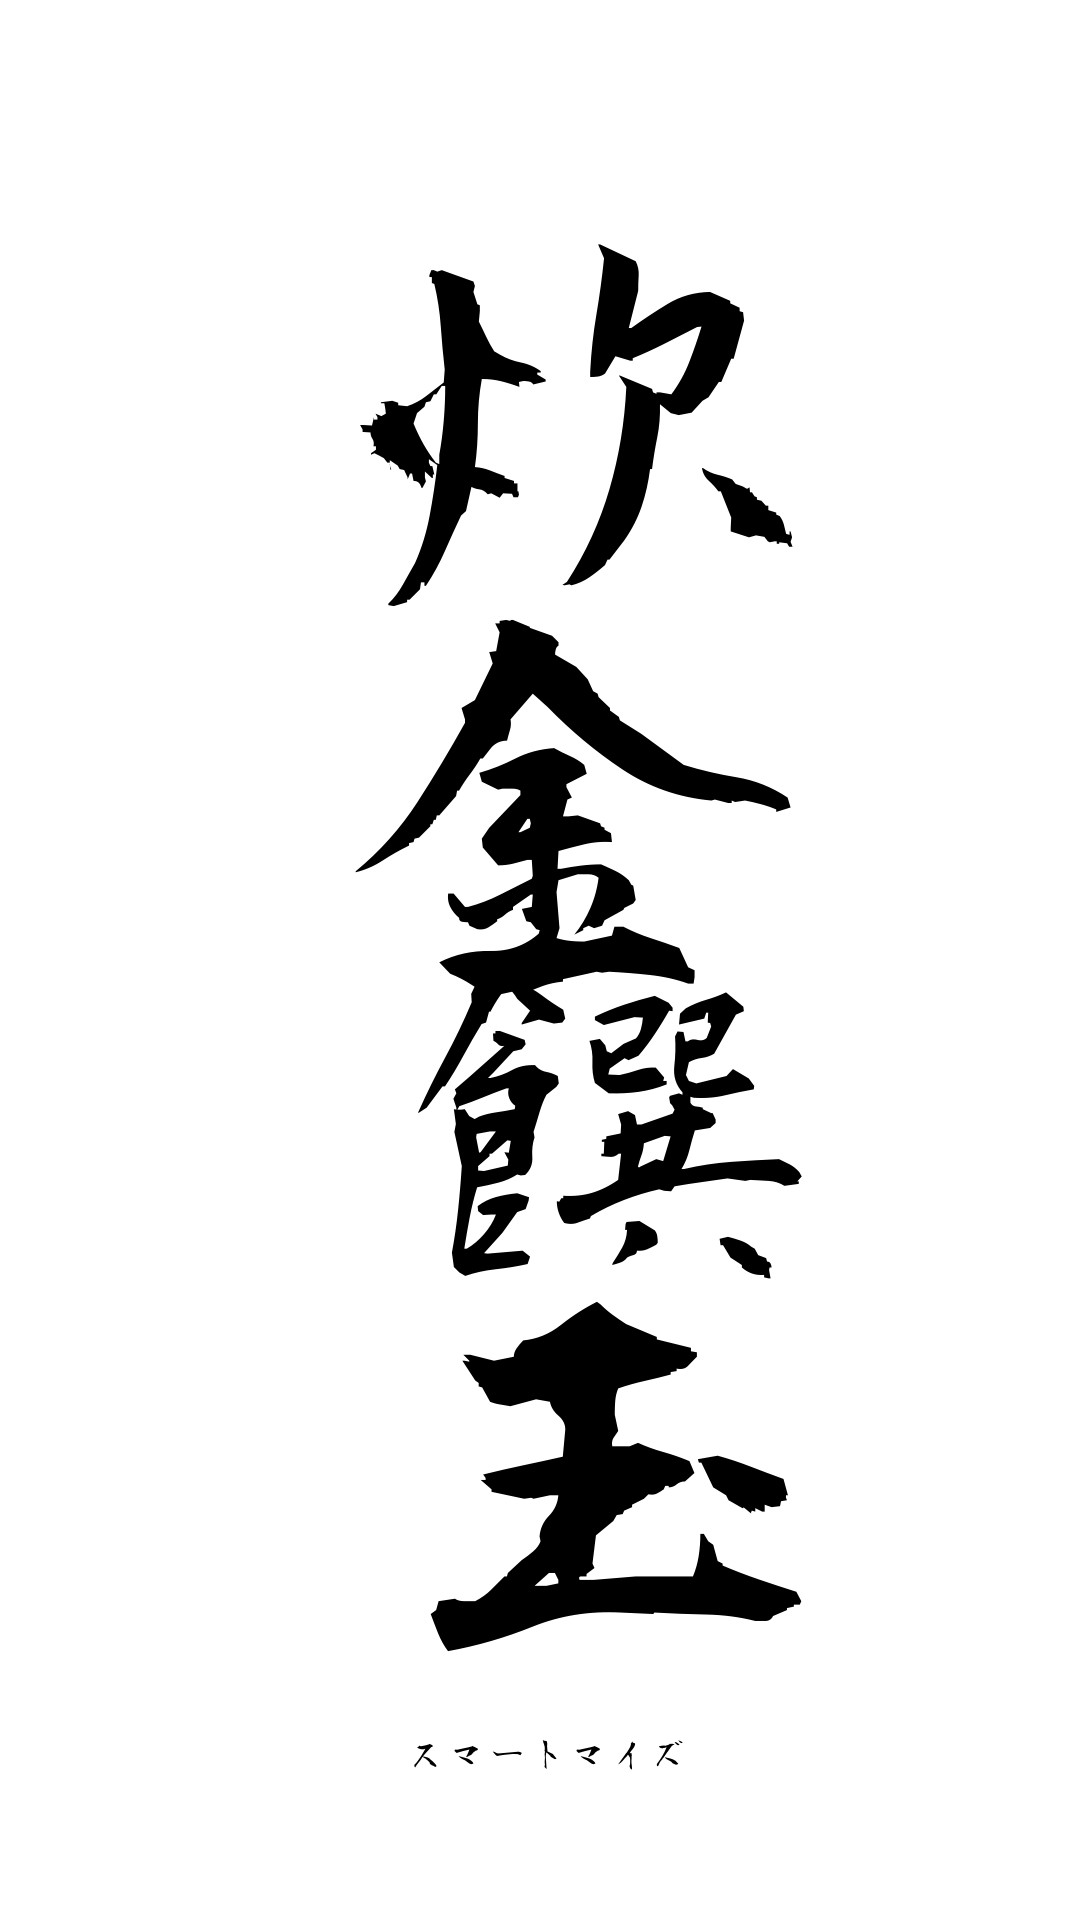 炊金饌玉
スマートマイズ